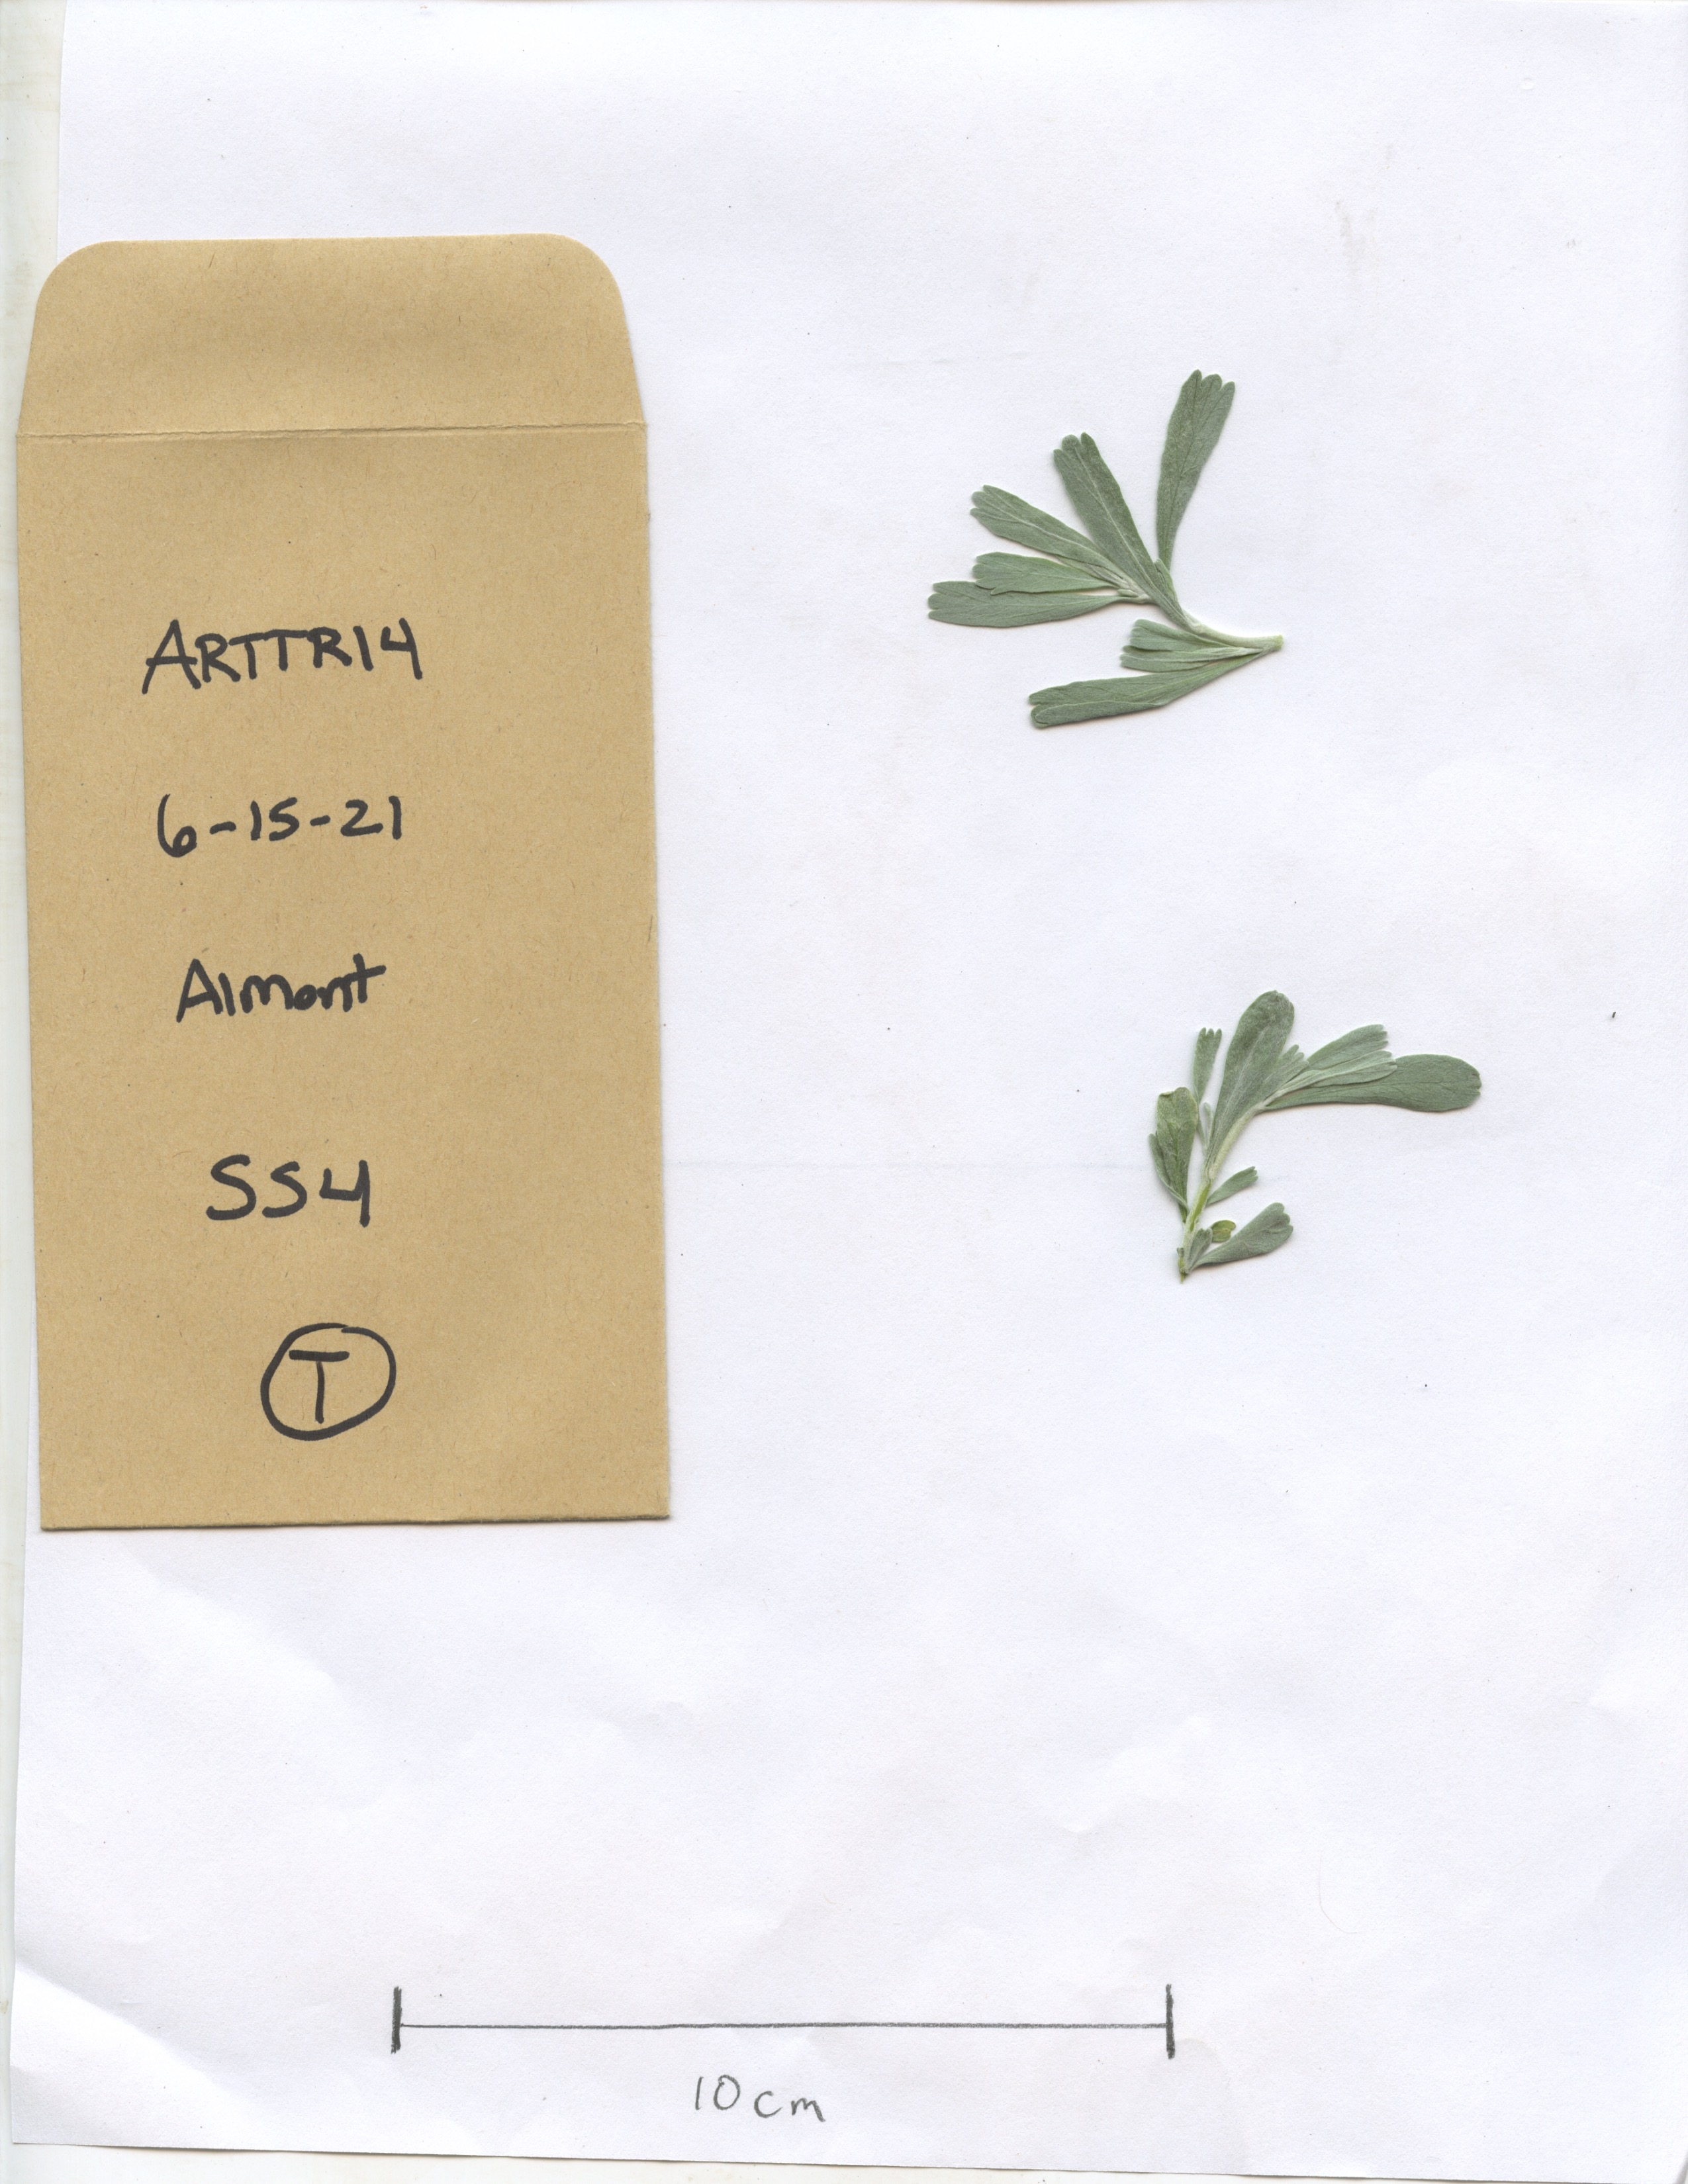 ARTTR14
6-15-21
Almont
SS4
T
10cm